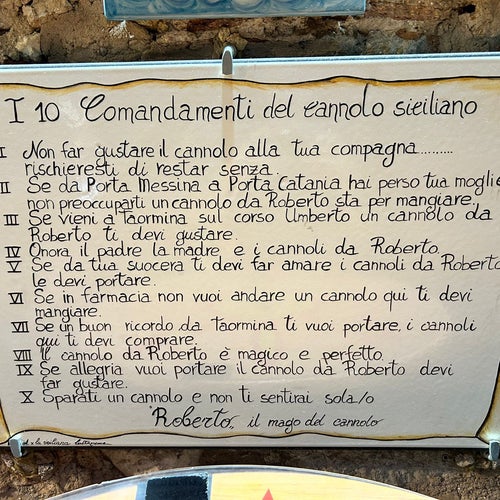 I 10 Comandamenti del cannolo siciliano
I Non far gustare il cannolo alla tua compagna..........
rischieresti di restar senza.
II Se da Porta Messina a Porta Catania hai perso tua moglie
non preoccuparti un cannolo da Roberto sta per mangiare!
III Se vieni a Taormina sul corso Umberto un cannolo da
Roberto ti devi gustare.
IV Onora il padre la madre e i cannoli da Roberto
V Se da tua suocera ti devi far amare i cannoli da Roberto
le devi portare.
VI Se in farmacia non vuoi andare un cannolo qui ti devi
mangiare.
VII Se un buon ricordo da Taormina ti vuoi portare, i cannoli
qui ti devi comprare.
VIII Il cannolo da Roberto è magico e perfetto.
IX Se allegria vuoi portare il cannolo da Roberto devi
far gustare.
X Sparati un cannolo e non ti sentirai sola/o
Roberto, il mago del cannolo